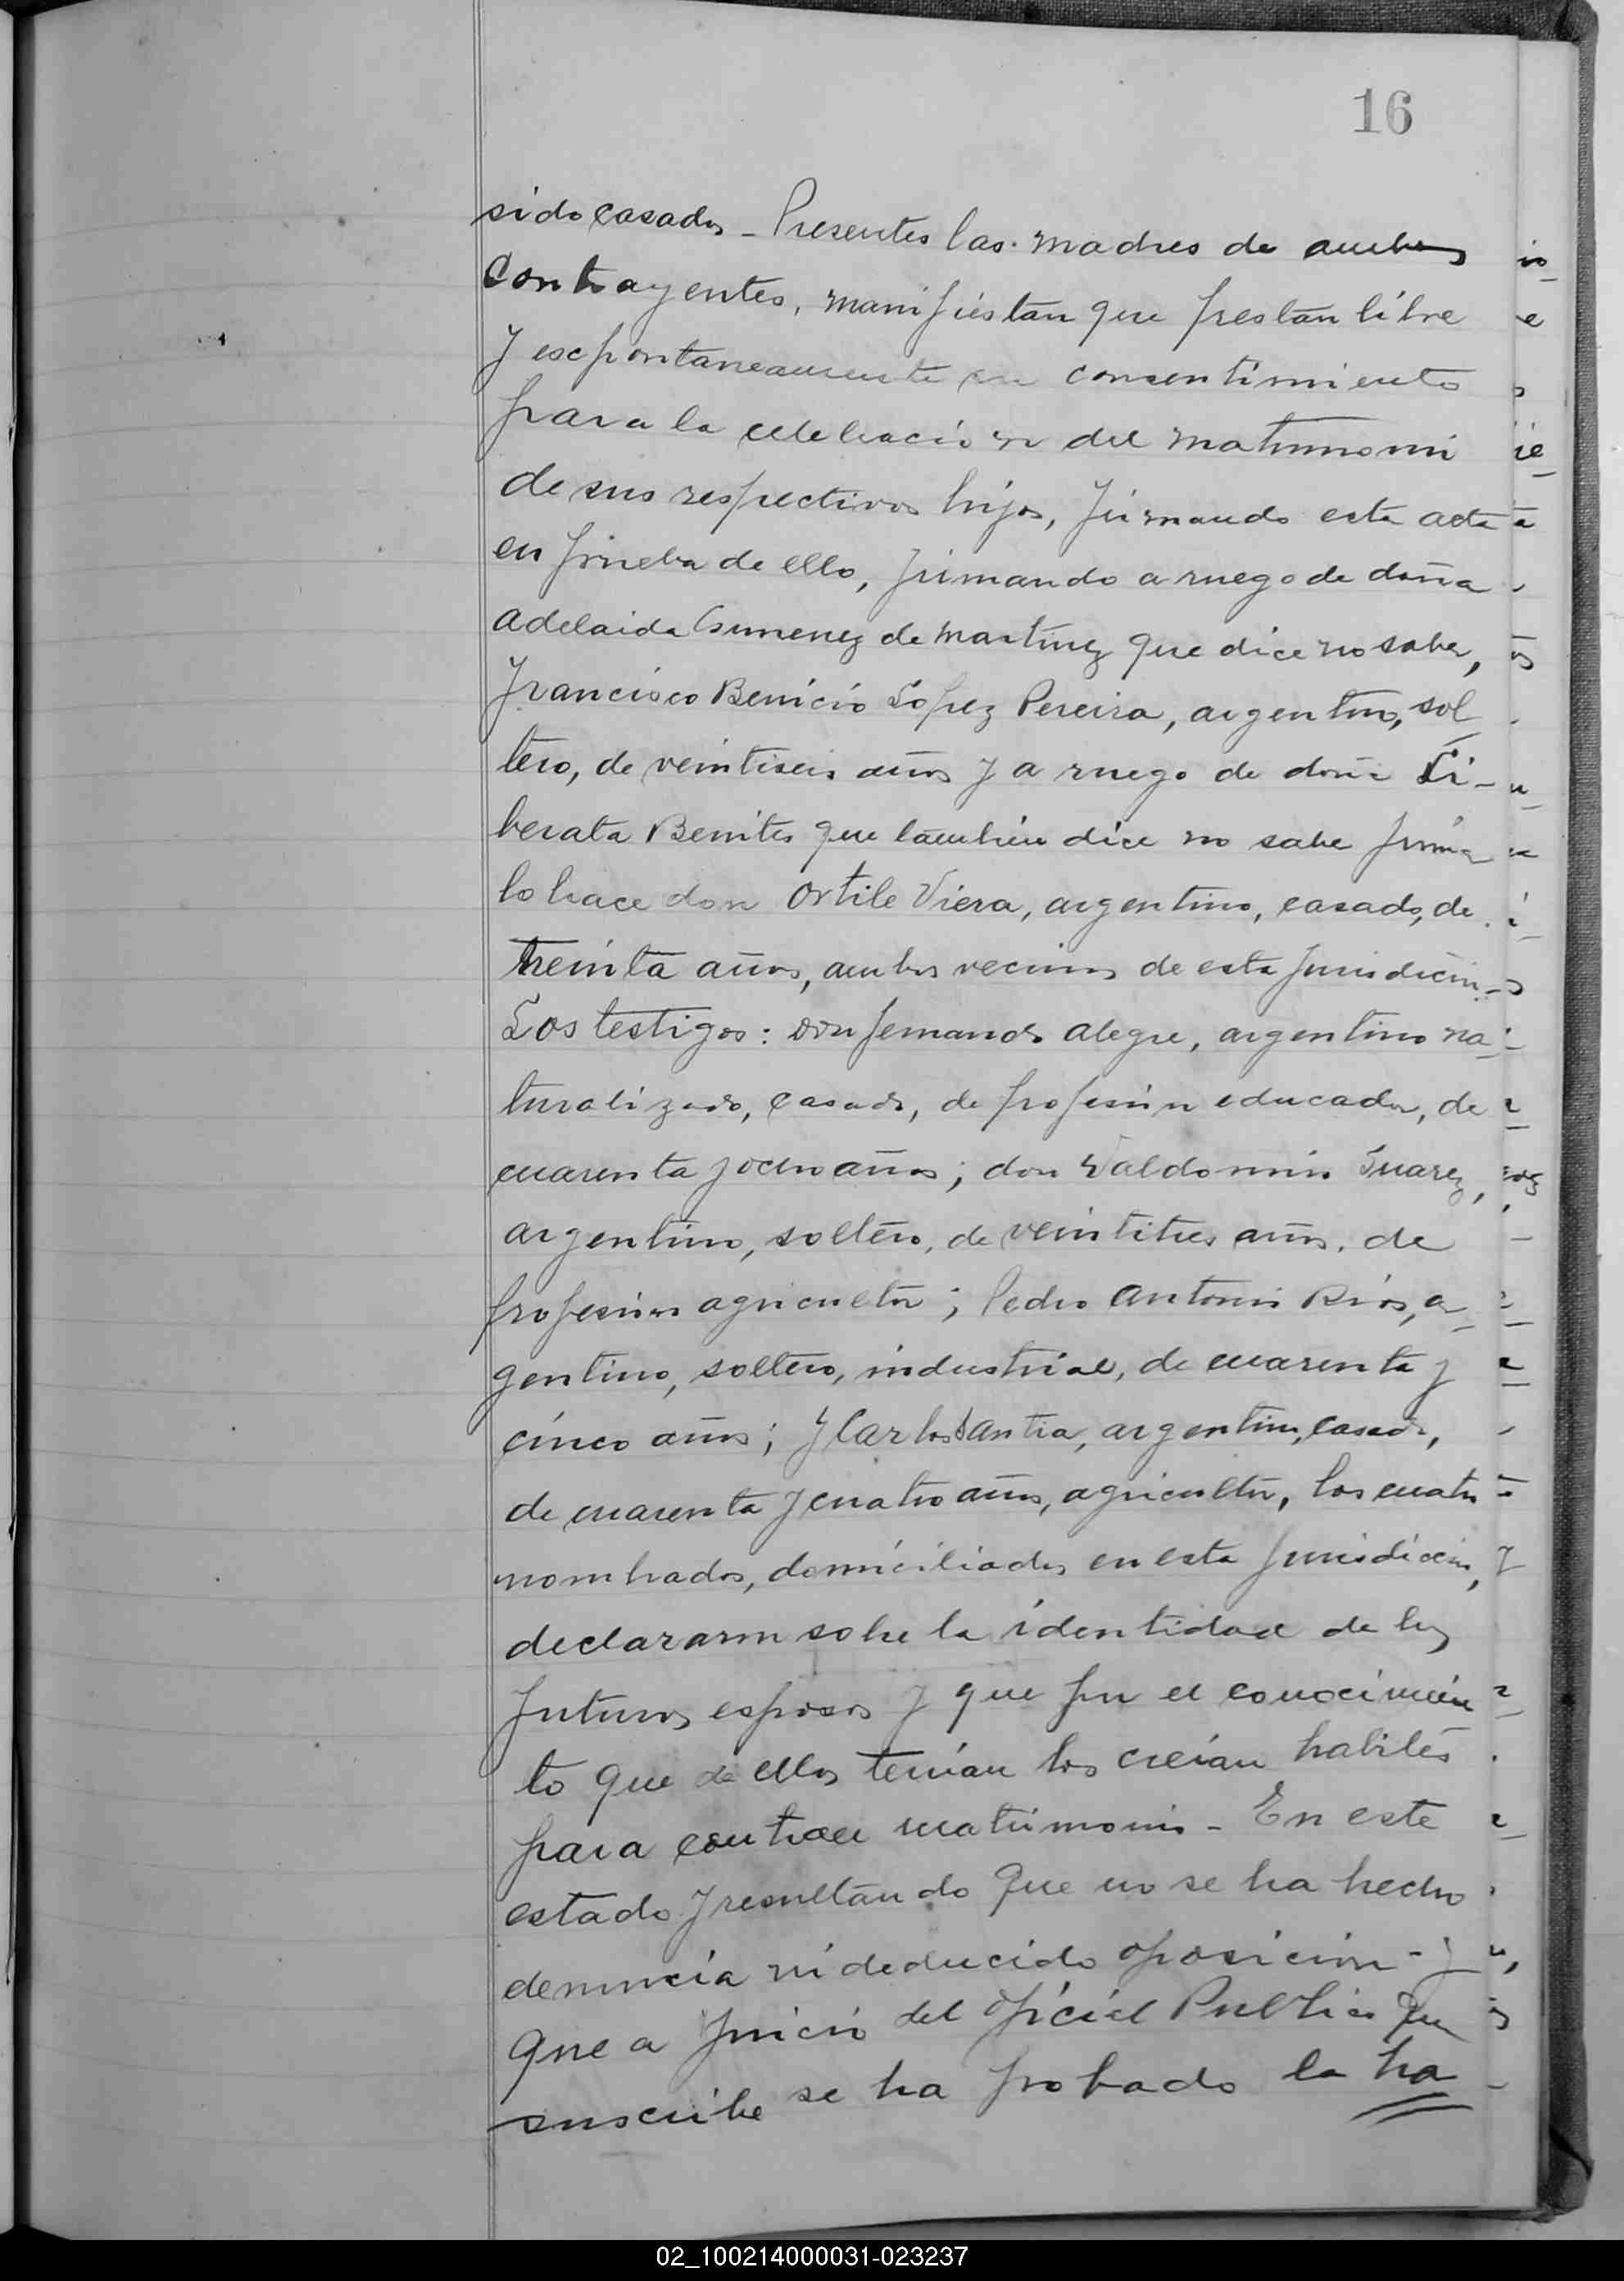 16
sido casados - Presentes las madres de ambos
contrayentes, manifiestan que prestan libre
y escpontaneamente su consentimiento
para la celebracion del matrimoni
de sus respectivos hijos, firmando esta acta
en prueba de ello, firmando a ruego de doña
Adelaida Gimenez de Martinez que dice no saber,
Francisco Benicio Lopez Pereira, argentino, sol
tero, de veintiseis años y a ruego de doña Li-
berata Benites que tambien dice no saber firmar
lo hace don Ortile Viera, argentino, casado, de
treinta años, ambos vecinos de esta jurisdicion.-
Los testigos: don Fernando Alegre, argentino na-
turalizado, casado, de profesion educador, de
cuarenta y ocho años; don Valdomiro Suarez,
argentino, soltero, de veintitres años, de
profesion agricultor; Pedro Antonio Rios, ar-
gentino, soltero, industrial, de cuarenta y
cinco años; y Carlos Santia, argentino, casado,
de cuarenta y cuatro años, agricultor, los cuatro
nombrados, domiciliados en esta jurisdiccion,
declararon sobre la identidad de los
futuros esposos y que por el conocimien
to que de ellos tenían los creían habiles
para contraer matrimonio - En este
estado y resultando que no se ha hecho
denuncia ni deducido oposicion - y
que a juicio del Oficial Publico que
suscribe se ha probado la ha
02_100214000031-023237